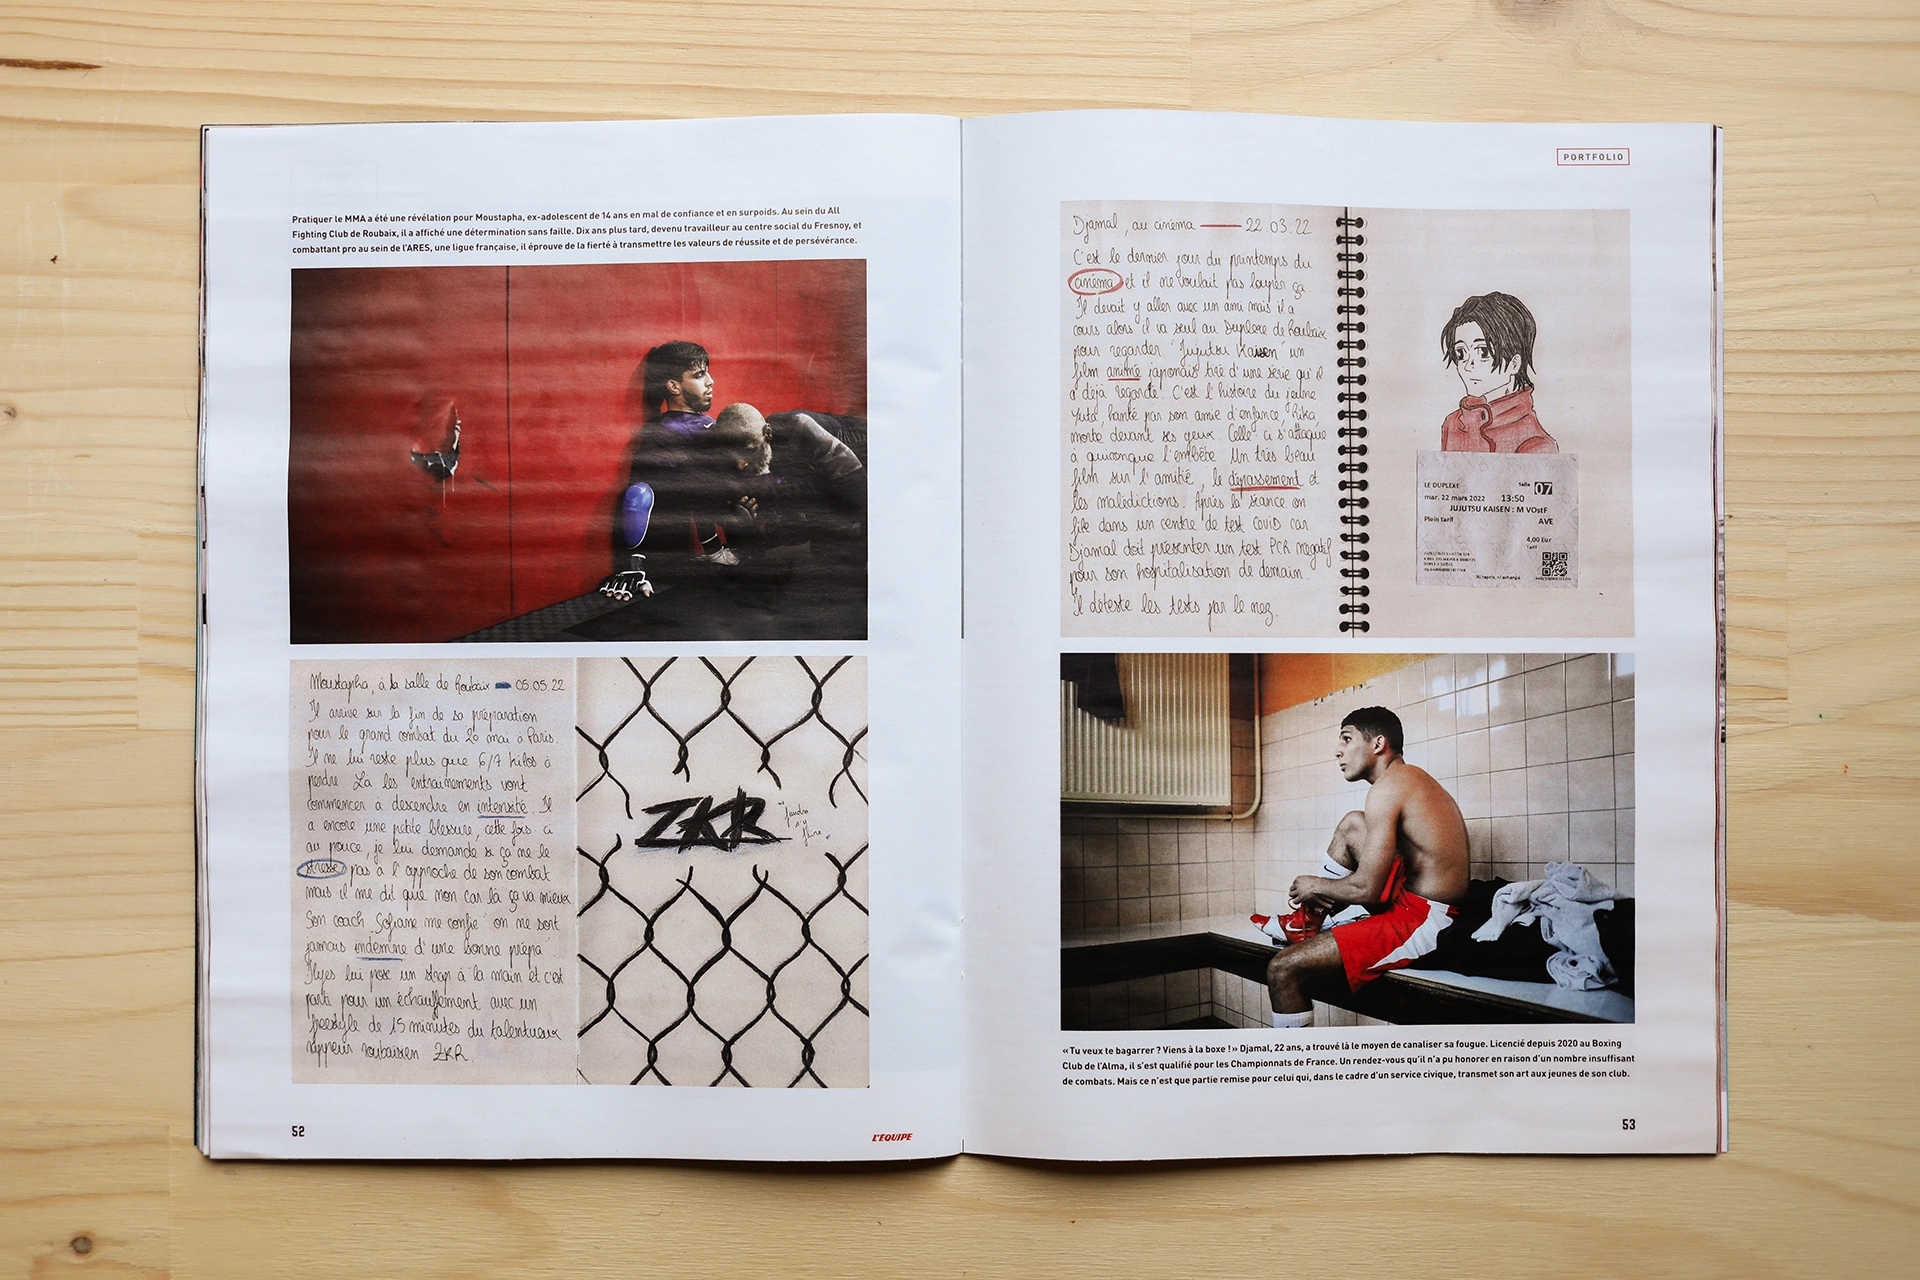 Pratiquer le MMA a été une révélation pour Moustapha, ex-adolescent de 14 ans en mal de confiance et en surpoids. Au sein du All
Fighting Club de Roubaix, il a affiché une détermination sans faille. Dix ans plus tard, devenu travailleur au centre social du Fresnoy, et
combattant pro au sein de l'ARES, une ligue française, il éprouve de la fierté à transmettre les valeurs de réussite et de persévérance.
Moustapha, à la salle de Roubaix 05.05.22
Il arrive sur la fin de sa préparation
pour le grand combat du 20 mai à Paris.
Il ne lui reste plus que 6/7 kilos à
perdre. Là les entrainements vont
commencer à descendre en intensité. Il
a encore une petite blessure, cette fois-ci
au pouce, je lui demande si ça ne le
stresse pas à l'approche de son combat
mais il me dit que non car là ça va mieux
Son coach Sofiane me confie "on ne sort
jamais indemne d'une bonne prépa"
Ilyes lui pose un strap à la main et c'est
parti pour un échauffement avec un
freestyle de 15 minutes du talentueux
rappeur roubaisien ZKR
ZKR
"faudra
s'y
faire"
52
L'EQUIPE
PORTFOLIO
Djamal, au cinéma 22.03.22
C'est le dernier jour du printemps du
cinéma et il ne voulait pas louper ça
Il devait y aller avec un ami mais il a
cours alors il va seul au Duplexe de Roubaix
pour regarder "Jujutsu Kaisen" un
film animé japonais tiré d'une série qu'il
a déjà regardé. C'est l'histoire du jeune
Yuta, hanté par son amie d'enfance, Rika,
morte devant ses yeux. Celle-ci s'attaque
à quiconque l'embête. Un très beau
film sur l'amitié, le dépassement et
les malédictions. Après la séance on
file dans un centre de test covid car
Djamal doit présenter un test PCR négatif
pour son hospitalisation de demain.
Il déteste les tests par le nez.
LE DUPLEXE Salle 07
mar. 22 mars 2022 13:50
JUJUTSU KAISEN : M VOstF
Plein tarif AVE
4,00 Eur
Tarif
Ni repris, ni échangé
« Tu veux te bagarrer ? Viens à la boxe ! » Djamal, 22 ans, a trouvé là le moyen de canaliser sa fougue. Licencié depuis 2020 au Boxing
Club de l'Alma, il s'est qualifié pour les Championnats de France. Un rendez-vous qu'il n'a pu honorer en raison d'un nombre insuffisant
de combats. Mais ce n'est que partie remise pour celui qui, dans le cadre d'un service civique, transmet son art aux jeunes de son club.
53